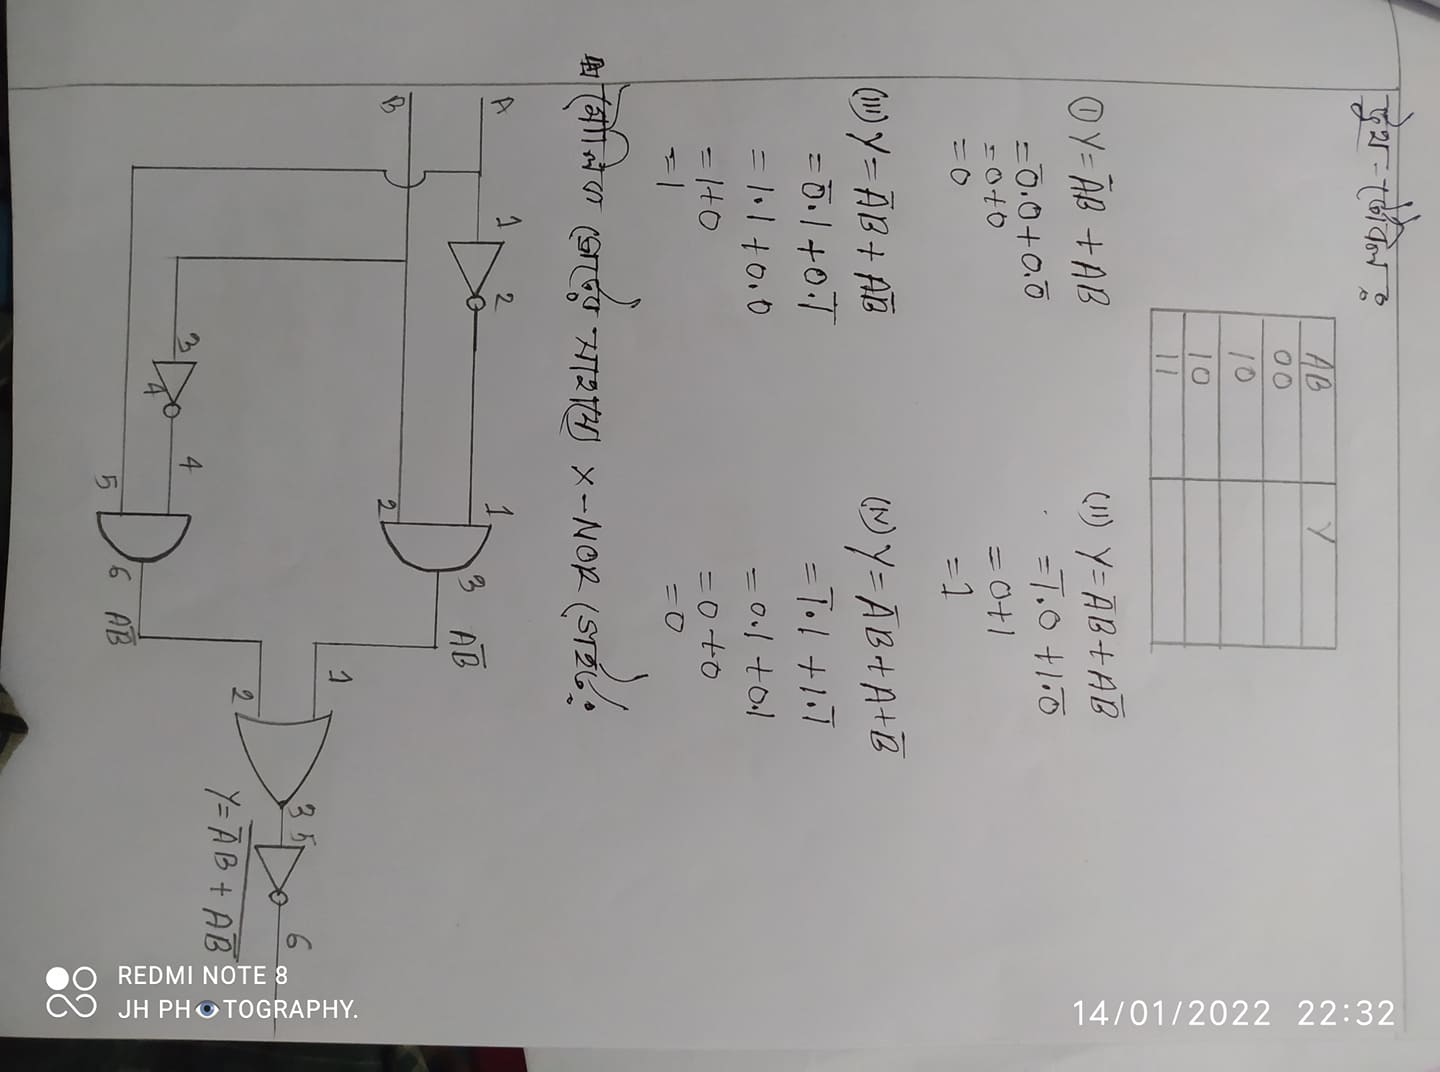 ট্রুথ-টেবিল ঃ
AB Y
00
10
10
11
① Y = A̅B + AB
= 0̅.0+0.0̅
= 0+0
= 0
(ii) Y = A̅B + AB̅
= 1̅.0 + 1.0̅
= 0+1
= 1
(iii) Y = A̅B + AB̅
= 0̅.1 + 0.1̅
= 1.1 + 0.0
= 1+0
= 1
(iv) Y = A̅B + A+B̅
= 1̅.1 + 1.1̅
= 0.1 + 0.1
= 0+0
= 0
মৌলিক গেইট সাহায্যে X-NOR গেইট ঃ
A 1 2 1 3 AB̅
B 2
3 4 4
5 6 AB̅
1 2 3 5 6
Y = A̅B + AB̅
REDMI NOTE 8
JH PHOTOGRAPHY.
14/01/2022 22:32